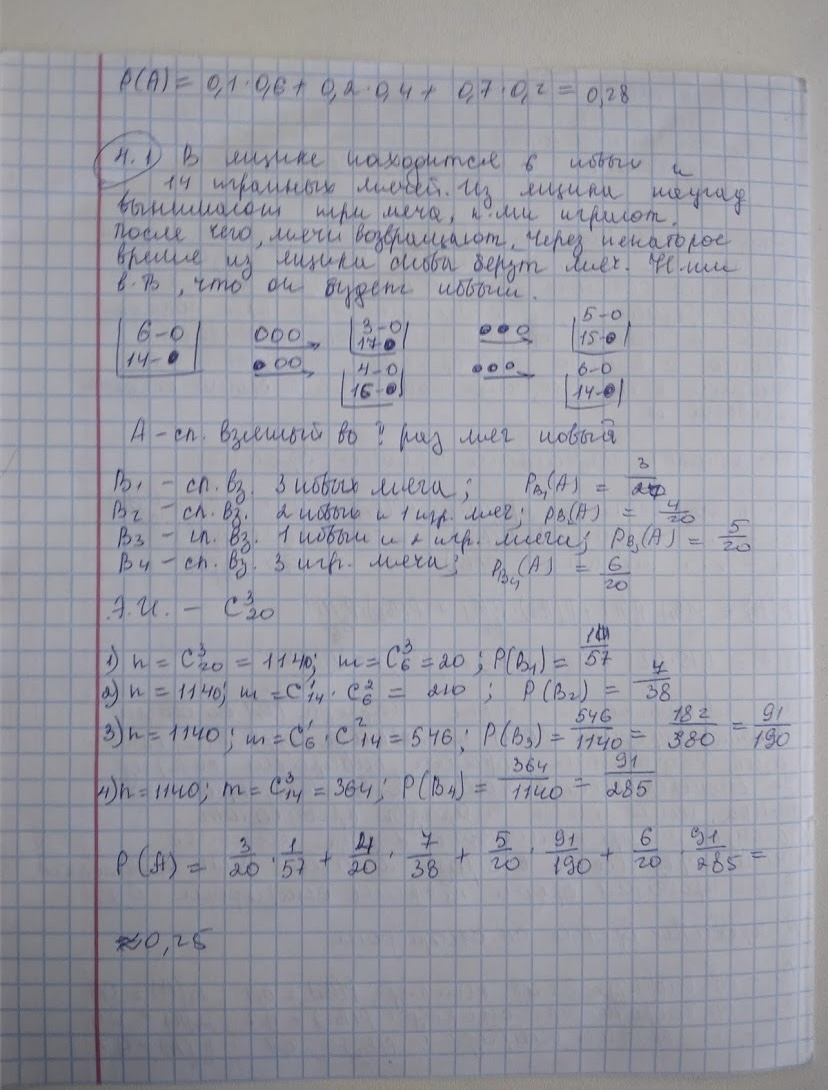 P(A) = 0,1·0,6 + 0,2·0,4 + 0,7·0,2 = 0,28
4.1 В ящике находится 6 новых и
14 игранных мячей. Из ящика наугад
вынимают три мяча, к-ми играют.
После чего, мячи возвращают, через некоторое
время из ящика снова берут мяч. Найти
в-ть, что он будет новым.
6-0 000 3-0 ●●0 5-0
14-● 17-● 15-●
●00 4-0 ●●● 6-0
16-● 14-●
А - сп. взятый во 2 раз мяч новый
B₁ - сп. вз. 3 новых мяча; P_B₁(A) = 3/20
B₂ - сп. вз. 2 новых и 1 игр. мяч; P_B₂(A) = 4/20
B₃ - сп. вз. 1 новый и 2 игр. мяча; P_B₃(A) = 5/20
B₄ - сп. вз. 3 игр. мяча; P_B₄(A) = 6/20
Э.И. - C³₂₀
1) n = C³₂₀ = 1140; m = C³₆ = 20; P(B₁) = 1/57
2) n = 1140; m = C¹₁₄ · C²₆ = 210; P(B₂) = 7/38
3) n = 1140; m = C¹₆ · C²₁₄ = 546; P(B₃) = 546/1140 = 182/380 = 91/190
4) n = 1140; m = C³₁₄ = 364; P(B₄) = 364/1140 = 91/285
P(A) = 3/20 · 1/57 + 4/20 · 7/38 + 5/20 · 91/190 + 6/20 · 91/285 =
≈ 0,25